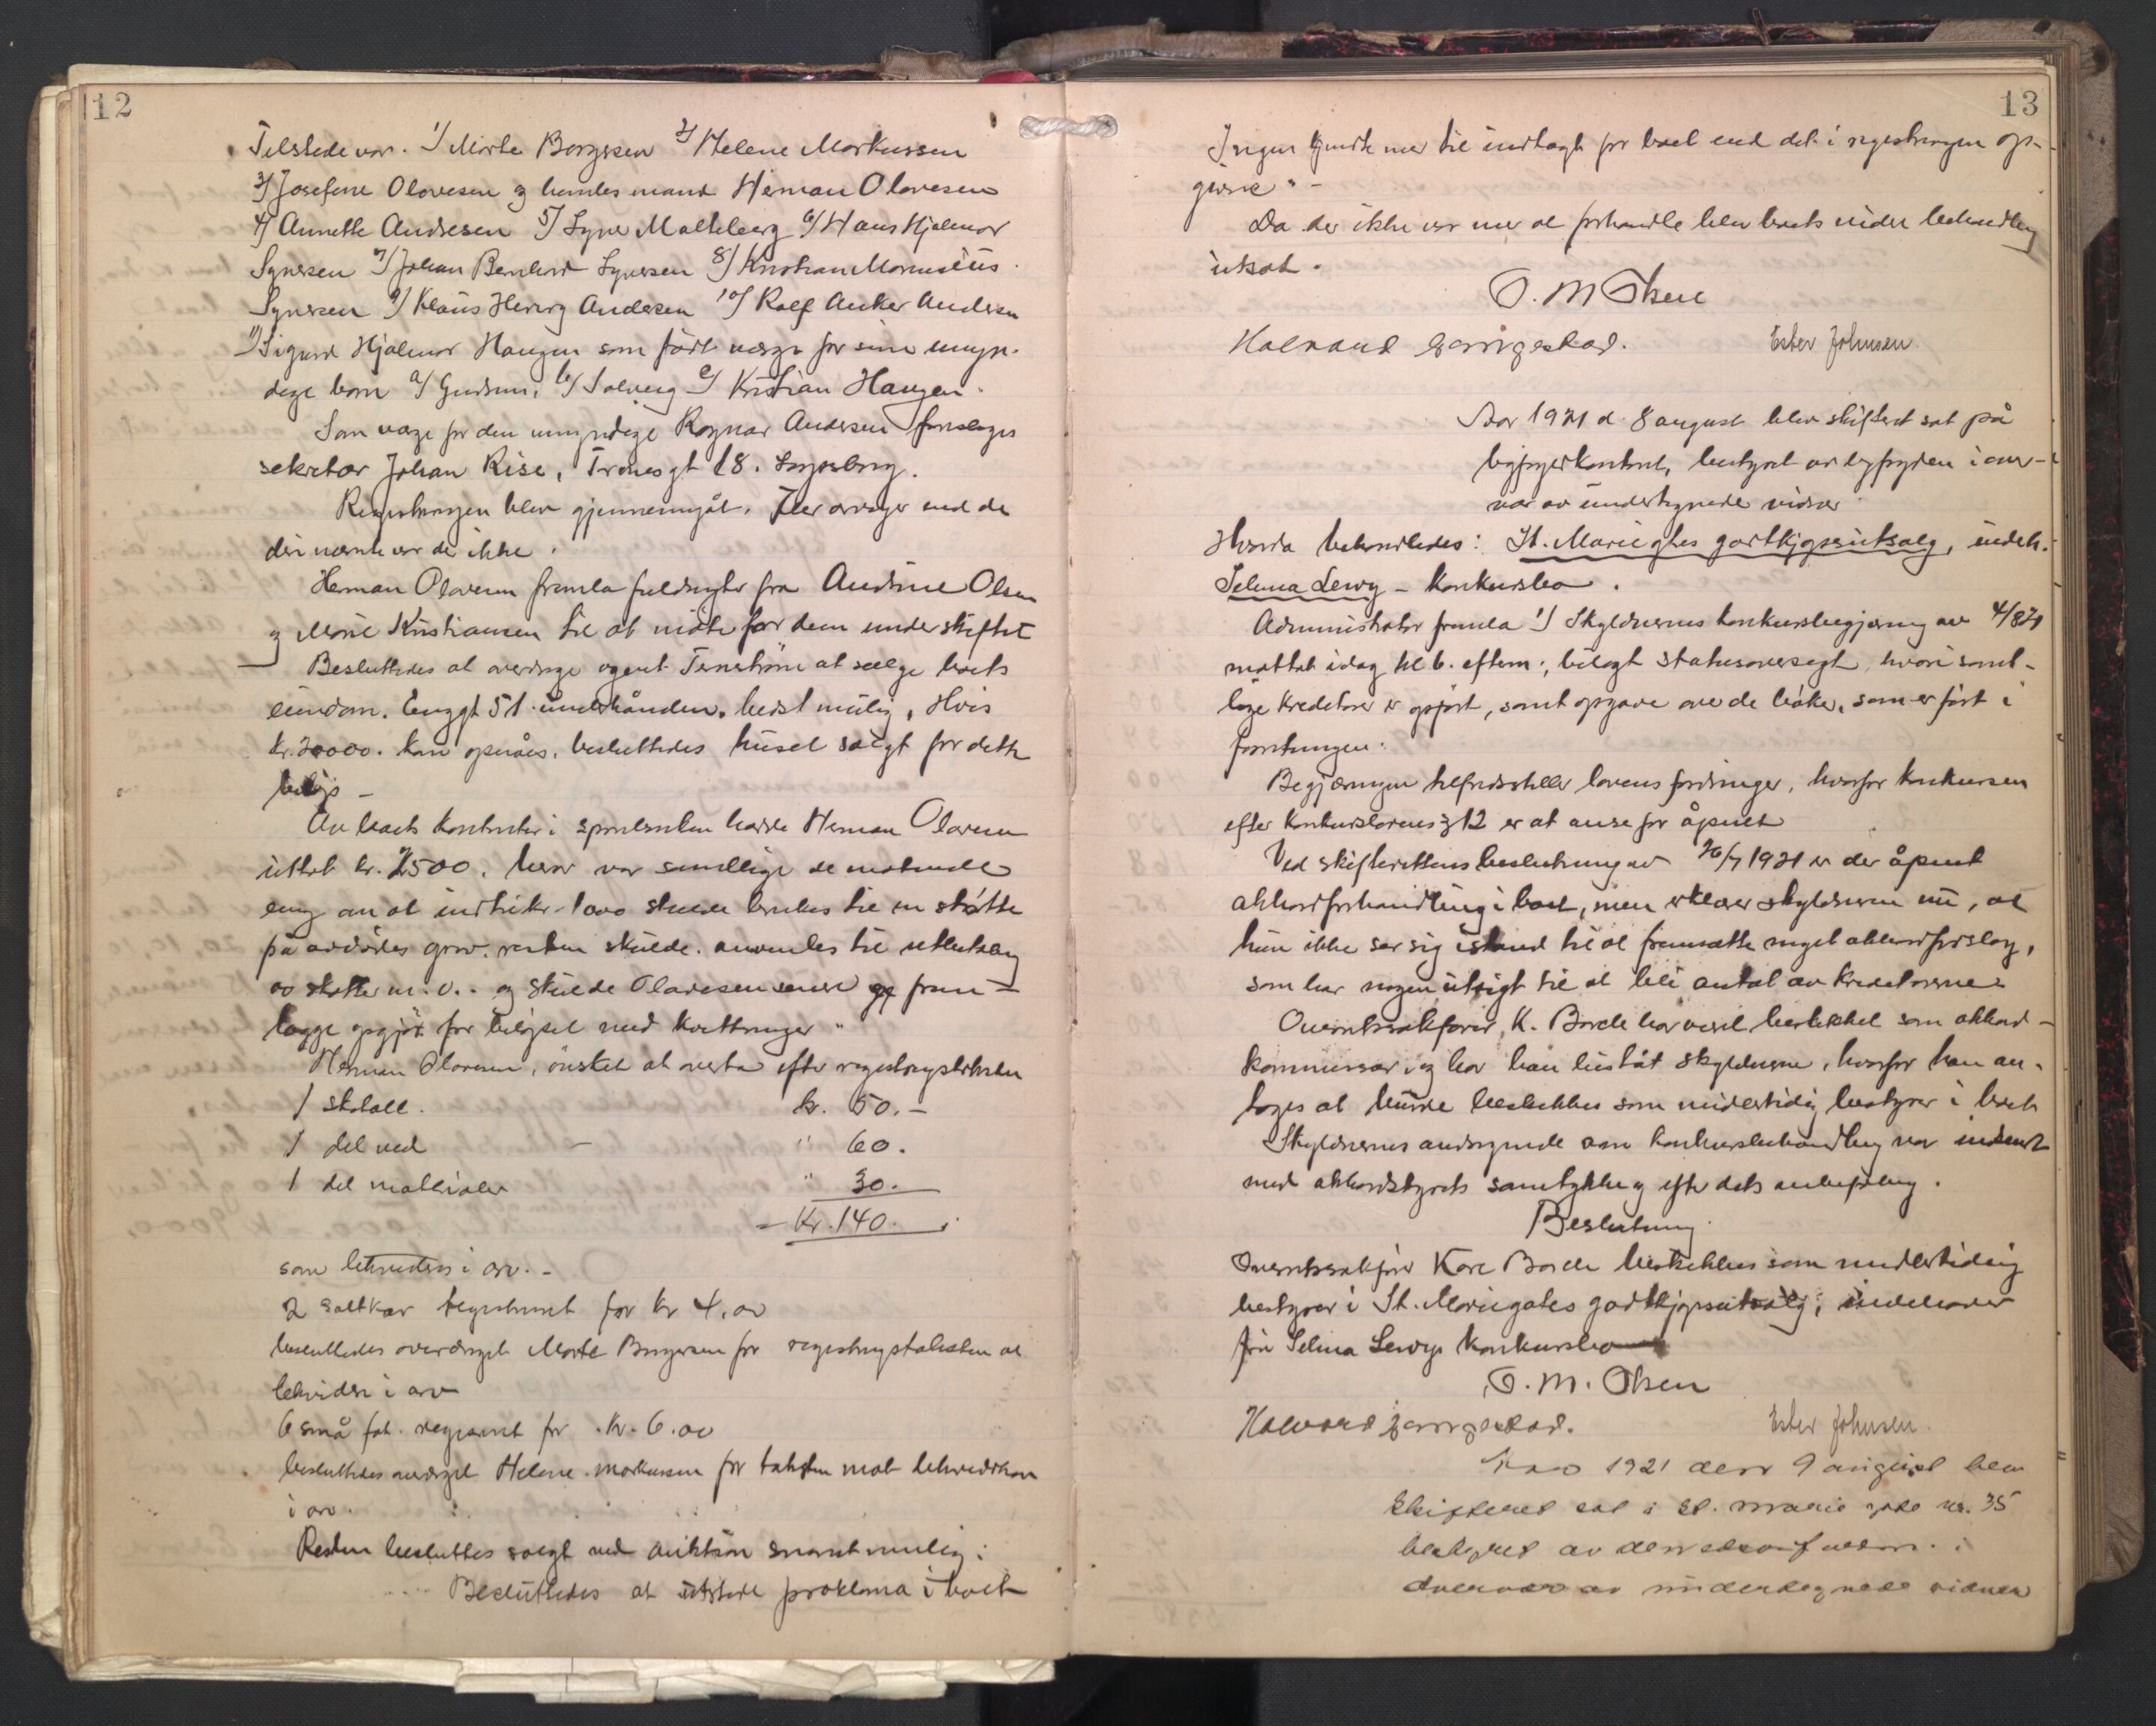 12
Tilstede var. 1/ Marte Borgersen 2/ Helene Markussen
3/ Josefine Olavesen og hendes mand Herman Olavesen
4/ Annette Andresen 5/ Syne Malteberg 6/ Hans Hjalmar
Synesen 7/ Johan Bernhard Synesen 8/ Kristian Marensius
Synesen 9/ Klaus Henry Andersen 10/ Rolf Anker Andersen
11/ Sigurd Hjalmar Haugen som født verge for sine umyn-
dige barn a/ Gudrun, b/ Solveig c/ Kristian Haugen.
Som verge for den umyndige Ragnar Andersen foreslages
sekretær Johan Rise, Tronesgt 18. Sarpsborg.
Registreringen blev gjennemgåt. Fler arvinger end de
deri nævnte var der ikke.
Herman Olavesen fremla fuldmagter fra Andrine Olsen
og Marie Kristiansen til at møte for dem under skiftet
Besluttedes at overdrage agent Ternstrøm at sælge boets
eiendom. Enggt 51 underhånden, bedst mulig, Hvis
Kr. 20000. kan opnåes, besluttedes huset solgt for dette
beløp –
Av boets kontanter i sparebanken hadde Herman Olavesen
uttat kr. 2500, herav var samtlige de møtende
enig om at indtil kr. 1000 skulde brukes til en støtte
på avdødes grav. resten skulde anvendes til utbetaling
av skatter m.v. og skulde Olavesen senere frem-
lægge opgjør for beløpet med kvitteringer "
Herman Olavesen, ønsket at overta efter registreringstaksten
1 stolall. kr. 50.–
1 del ved – " 60.
1 del materialer " 30.
– Kr. 140.
som likvideres i arv. –
2 saltkar registreret for kr 4,00
besluttedes overdraget Marte Borgersen for registreringstaksten at
likvidere i arv
6 små fat. registreret for kr. 6.00
besluttedes overdraget Helene Markussen for taksten mot likvidation
i arv.
Resten besluttes solgt ved auktion snarest mulig.
Besluttedes at utstede proklama i boet
13
Ingen kjendte mer til indtægt for boet end det i registreringen op-
givne" –
Da der ikke var mer at forhandle blev boets videre behandling
utsat.
O. M Olsen
Halvard Ester Johnsen.
Aar 1921 d. 8 august blev skifteret sat på
byfogetkontoret, bestyret av byfogden i over-
vær av undertegnede vidner
Hvorda behandledes: St. Mariegtes godtkjøpsutsalg, indeh.
Selma Lewy – konkursbo.
Administrator fremla 1/ Skyldnerens konkursbegjæring av 4/8 21
mottat idag kl 6. efterm; bilagt statusoversigt, hvori samt-
lige kreditorer er opført, samt opgave over de bøker, som er ført i
forretningen.
Begjæringen tilfredsstiller lovens fordringer, hvorfor konkursen
efter konkurslovens § 12 er at anse for åpnet
Ved skifterettens beslutning av 26/7 1921 er der åpnet
akkordforhandling i boet, men erklærer skyldneren nu, at
hun ikke ser sig istand til at fremsætte noget akkordforslag,
som har nogen utsigt til at bli antat av kreditorerne
Overretssakfører K. Borch har været beskikket som akkord-
kommissær og har han bistået skyldneren, hvorfor han an-
tages at burde beskikkes som midlertidig bestyrer i boet
Skyldnerens andragende om konkursbehandling var indsendt
med akkordstyrets samtykke og efter dets anbefaling.
Beslutning
Overretssakfører Kåre Borch beskikkes som midlertidig
bestyrer i St. Mariegates godtkjøpsutsalg, indehaver
fru Selma Lewys konkursbo
O. M. Olsen
Halvard Ester Johnsen.
Aar 1921 den 9 august blev
Skifteret sat i St. Marie gate nr. 35
bestyret av
overvær av undertegnede vidner